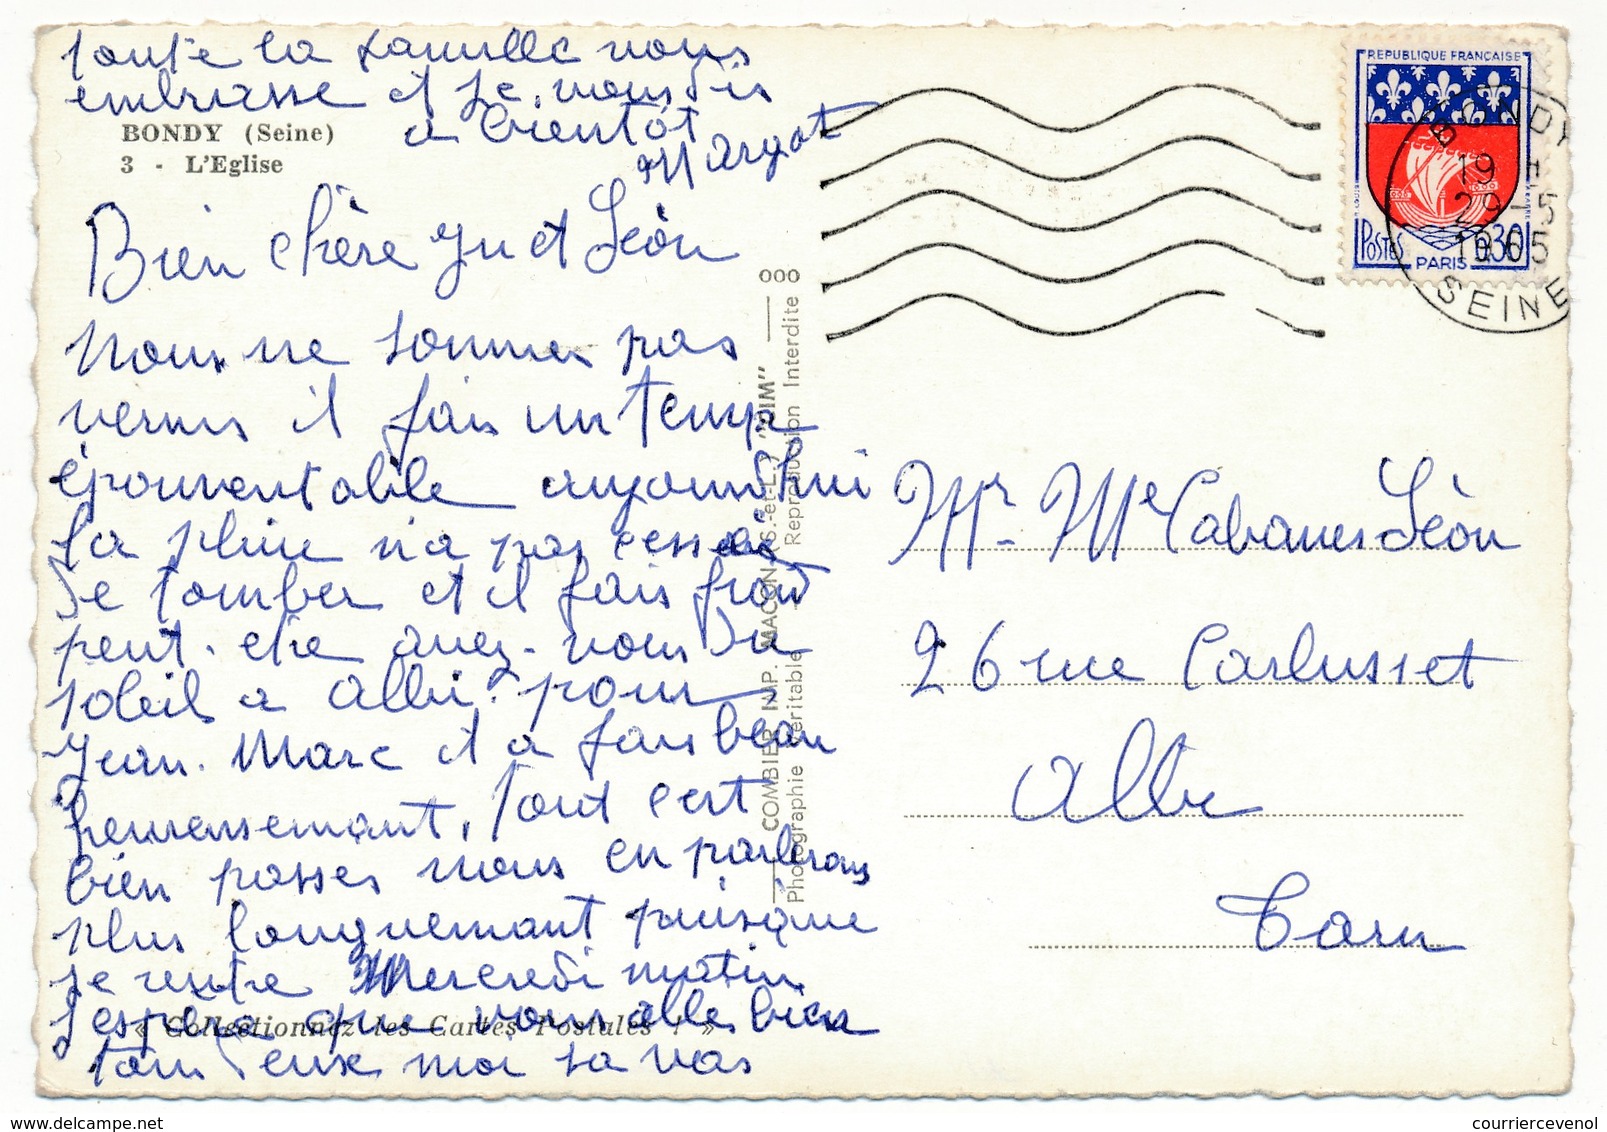 toute la famille vous
embrasse et je vous dis
a bientôt
Margot
BONDY (Seine)
3 - L'Eglise
Bien chère et Léon
Nous ne sommes pas
vernis il fais un temps
épouventable aujourd'hui
la pluie n'a pas cesser
de tomber et il fais froid
peut-etre avez-vous du
soleil a Albi? pour
Jean-Marc il a fais beau
heureusemant, tout c'est
bien passer nous en parlerons
plus longuemant puisque
je rentre Mercredi matin
J'espère que vous alles bien
tous deux moi sa vas
« Collectionnez les Cartes Postales ! »
COMBIER IMP. MACON (S.-et-L.) "CIM"
Photographie Véritable - Reproduction Interdite
REPUBLIQUE FRANÇAISE
POSTES
0,30
PARIS
BONDY
19 H
29-5
1965
SEINE
Mr. Me Cabanes Léon
26 rue Carlusset
Albi
Tarn
www.delcampe.net
courriercevenol